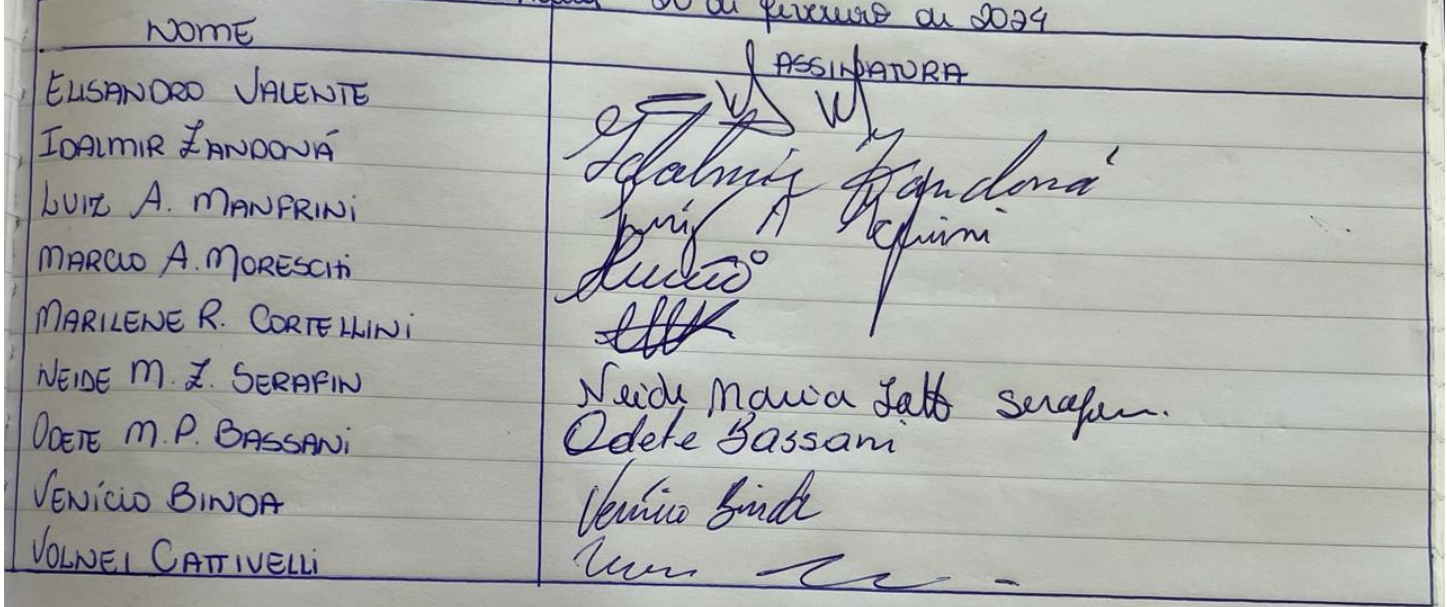 20 de fevereiro de 2024
NOME ASSINATURA
ELISANDRO VALENTE
IDALMIR ZANDONÁ Idalmir Zandoná
LUIZ A. MANFRINI Luiz A
MARCIO A. MORESCHI
MARILENE R. CORTELLINI
NEIDE M. Z. SERAFIN Neide Maria Serafin.
ODETE M.P. BASSANI Odete Bassani
VENÍCIO BINDA Venício Binda
VOLNEI CATTIVELLI